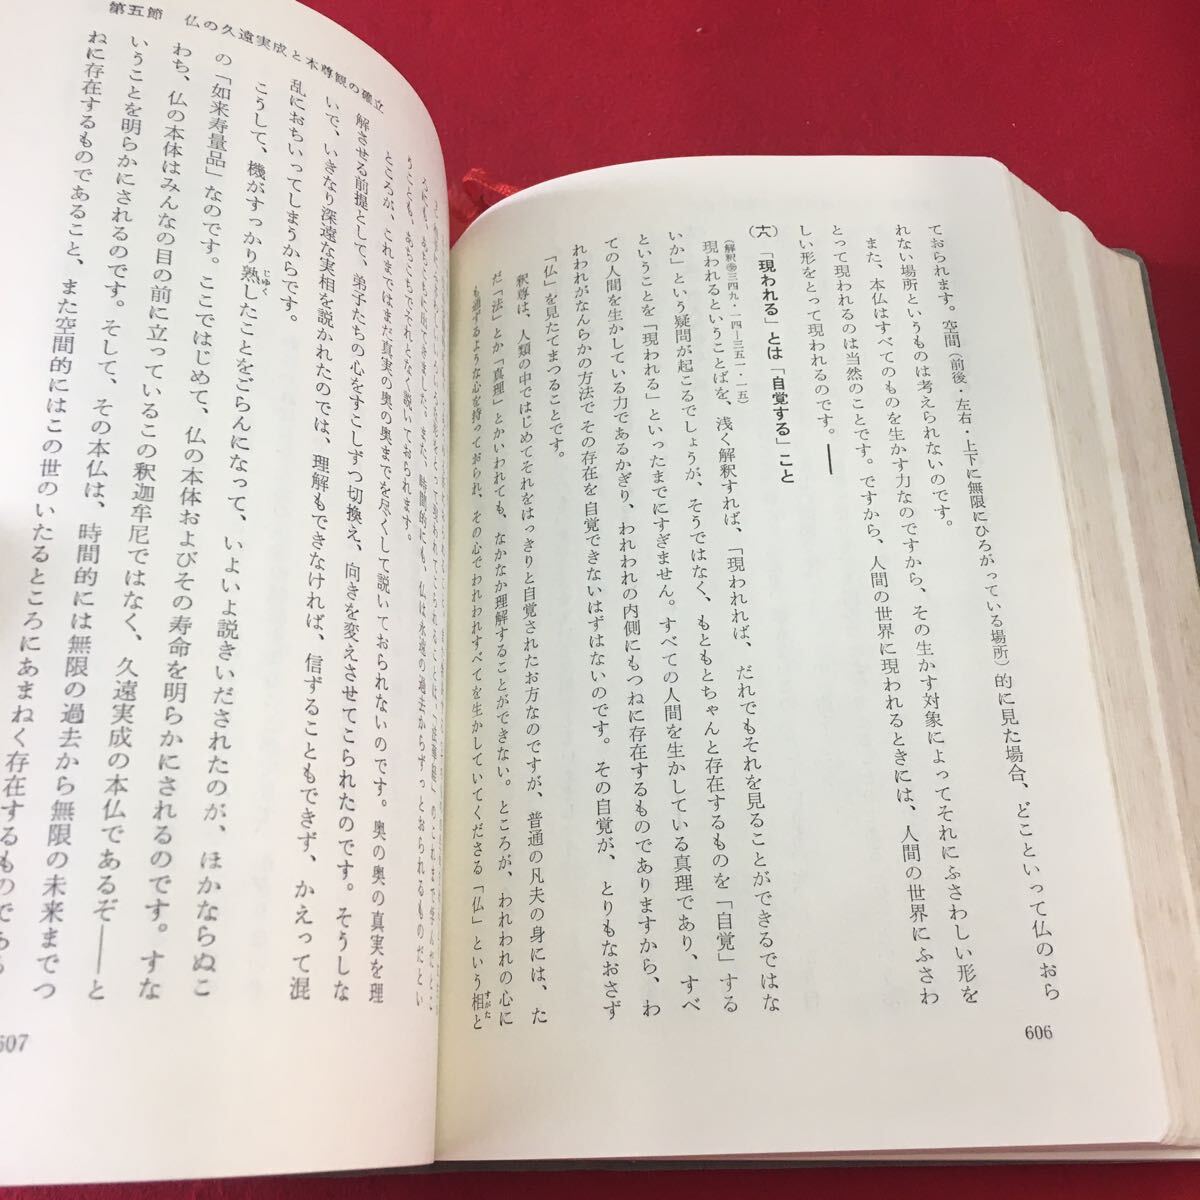 ておられます。空間(前後・左右・上下に無限にひろがっている場所)的に見た場合、どこといって仏のおら
れない場所というものは考えられないのです。
また、本仏はすべてのものを生かす力なのですから、その生かす対象によってそれにふさわしい形を
とって現われるのは当然のことです。ですから、人間の世界に現われるときには、人間の世界にふさわ
しい形をとって現われるのです。――
(十八)「現われる」とは「自覚する」こと
(解釈㊂三四九・一四―三五一・一五)
現われるということばを、浅く解釈すれば、「現われれば、だれでもそれを見ることができるではな
いか」という疑問が起こるでしょうが、そうではなく、もともとちゃんと存在するものを「自覚」する
ということを「現われる」といったまでにすぎません。すべての人間を生かしている真理であり、すべ
ての人間を生かしている力であるかぎり、われわれの内側にもつねに存在するものでありますから、わ
れわれがなんらかの方法でその存在を自覚できないはずはないのです。その自覚が、とりもなおさず
「仏」を見たてまつることです。
釈尊は、人類の中ではじめてそれをはっきりと自覚されたお方なのですが、普通の凡夫の身には、た
だ「法」とか「真理」とかいわれても、なかなか理解することができない。ところが、われわれの心に
も通ずるような心を持っておられ、その心でわれわれすべてを生かしていてくださる「仏」という相と
すがた
606
第五節 仏の久遠実成と本尊観の確立
ろにも、あちこちに出てきました。また、時間的にも、仏は永遠の過去からずっとおられるものだとい
うことも、あちこちでそれとなく説いておられます。
ところが、これまではまだ真実の奥の奥までを尽くして説いておられないのです。奥の奥の真実を理
解させる前提として、弟子たちの心をすこしずつ切換え、向きを変えさせてこられたのです。そうしな
いで、いきなり深遠な実相を説かれたのでは、理解もできなければ、信ずることもできず、かえって混
乱におちいってしまうからです。
こうして、機がすっかり熟したことをごらんになって、いよいよ説きいだされたのが、ほかならぬこ
じゅく
の「如来寿量品」なのです。ここではじめて、仏の本体およびその寿命を明らかにされるのです。すな
わち、仏の本体はみんなの目の前に立っているこの釈迦牟尼ではなく、久遠実成の本仏であるぞ――と
いうことを明らかにされるのです。そして、その本仏は、時間的には無限の過去から無限の未来までつ
ねに存在するものであること、また空間的にはこの世のいたるところにあまねく存在するものである
607